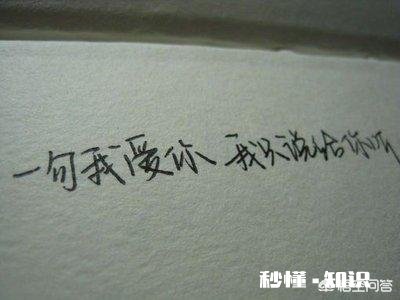 一句我爱你 我只说给你听
秒懂·知识
悟空问答